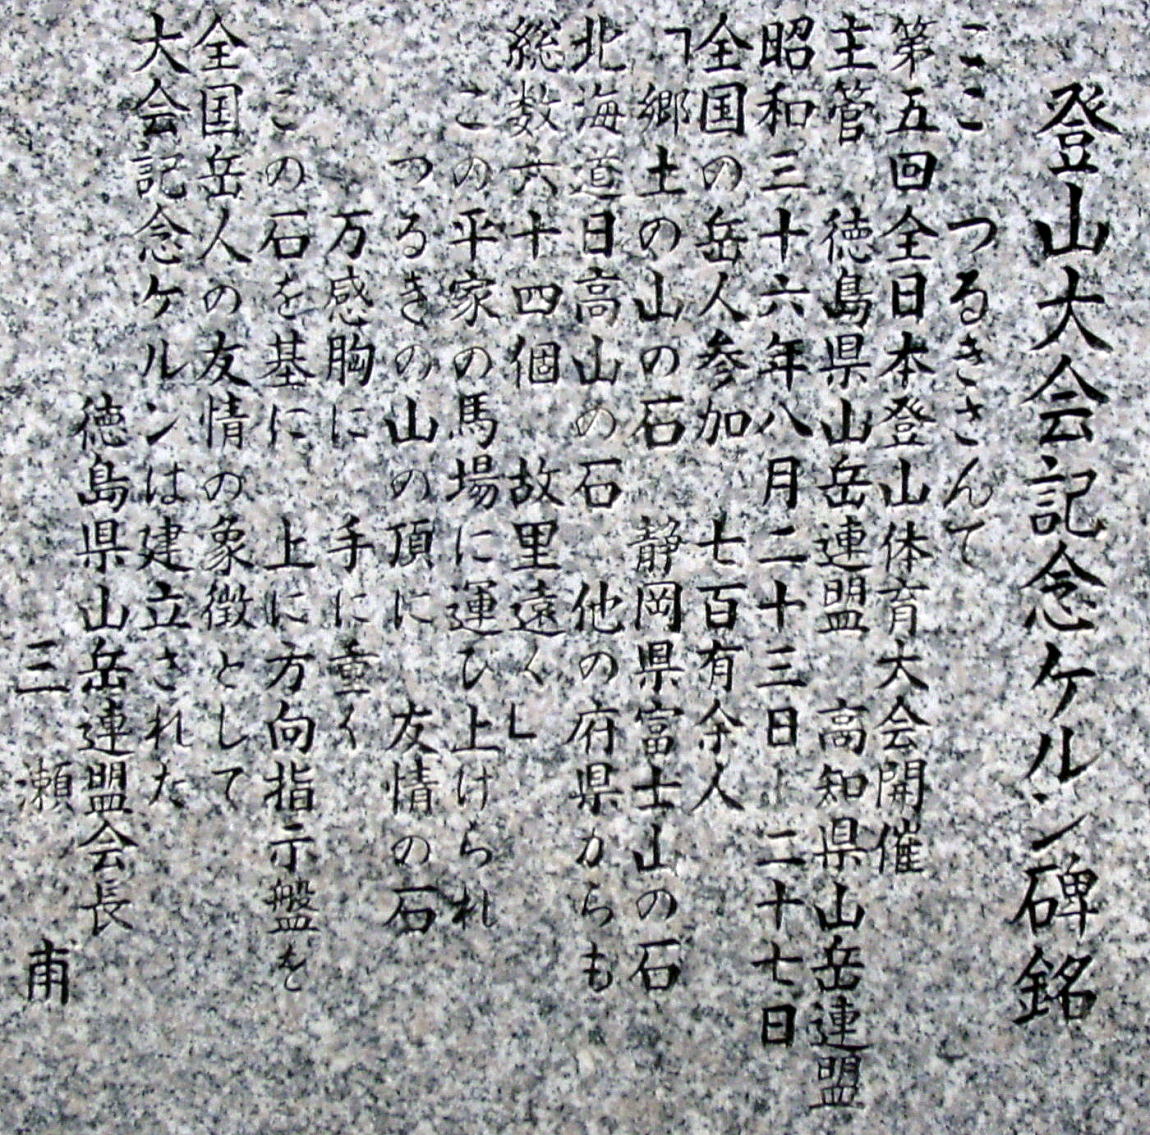 登山大会記念ケルン碑銘
ここ つるきさんて
第五回全日本登山体育大会開催
主管 徳島県山岳連盟 高知県山岳連盟
昭和三十六年八月二十三日ー二十七日
全国の岳人参加 七百有余人
「郷土の山の石 静岡県富士山の石
北海道日高山の石 他の府県からも
総数六十四個 故里遠く」
この平家の馬場に運ひ上けられ
つるきの山の頂に 友情の石
万感胸に 手に重く
この石を基に 上に方向指示盤を
全国岳人の友情の象徴として
大会記念ケルンは建立された
徳島県山岳連盟会長
三瀬 甫